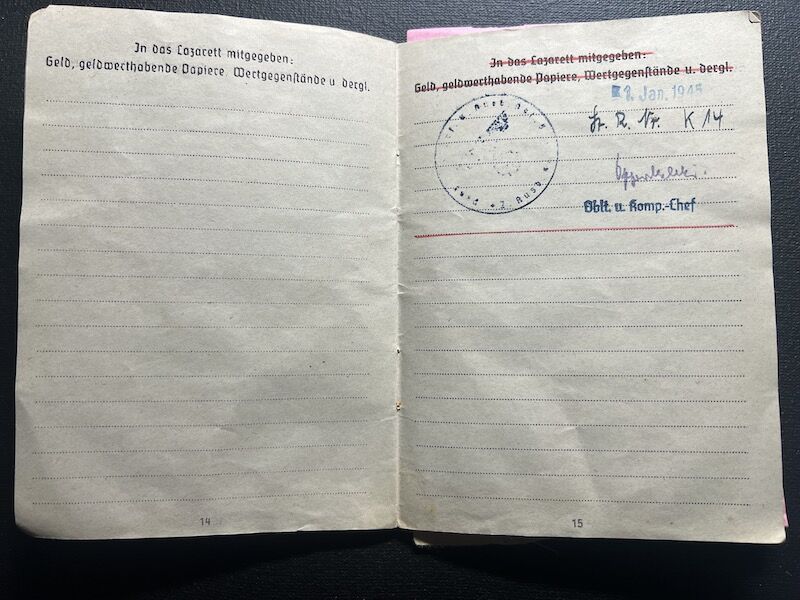 In das Lazarett mitgegeben:
Geld, geldwerthabende Papiere, Wertgegenstände u. dergl.
14
In das Lazarett mitgegeben:
Geld, geldwerthabende Papiere, Wertgegenstände u. dergl.
Jan. 1945
Nr. K 14
Oblt. u. Komp.-Chef
15